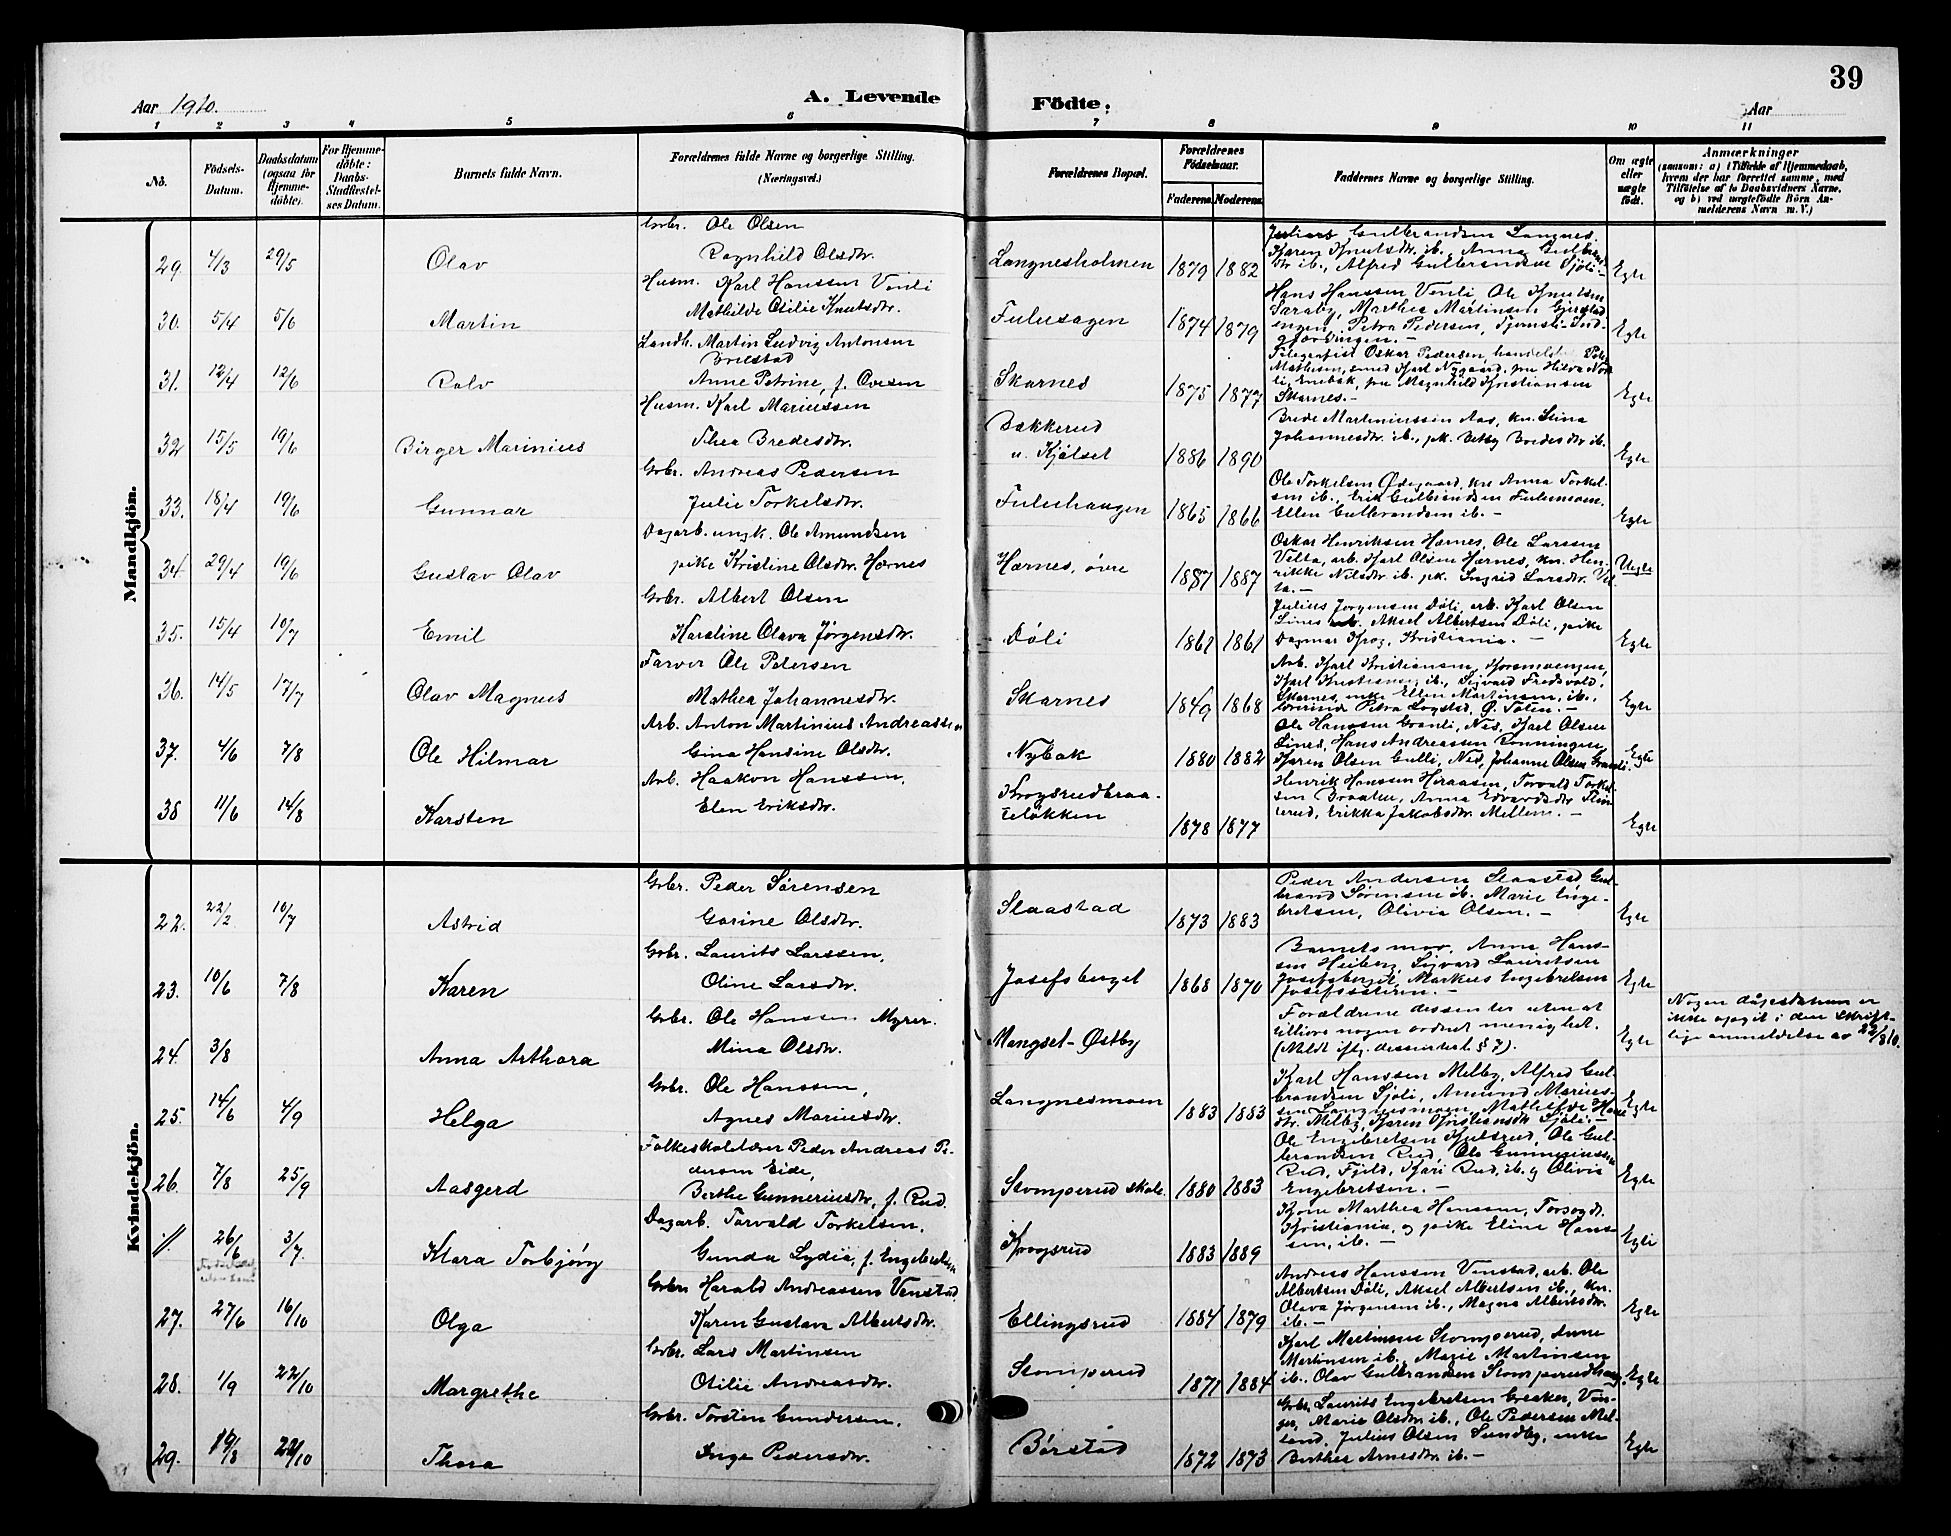 39
Aar 1910.
A. Levende Födte:
Aar
1 2 3 4 5 6 7 8 9 10 11
No.
Födsels-Datum.
Daabsdatum (ogsaa för Hjemme-döbte).
For Hjemme-döbte: Daabs-Stadfæstel-ses Datum.
Barnets fulde Navn.
Forældrenes fulde Navne og borgerlige Stilling. (Næringsvei.)
Forældrenes Bopæl.
Forældrenes Födselsaar.
Faderens. Moderens.
Faddernes Navne og borgerlige Stilling.
Om ægte eller uægte födt.
Anmærkninger
(saasom: a) i Tilfælde af Hjemmedaab, hvem der har forrettet samme, med Tilföielse af to Daabsvidners Navne, og b) ved uægtefödte Börn An-melderens Navn m. V.)
Mandkjön.
29. 4/3 29/5 Olav
Gbr. Ole Olsen
Ragnhild Olsdtr.
Langnesholmen 1879 1882
Julius Gulbrandsen Langnes,
Karen Knutsdtr. ib., Anna Gulbrands-
dtr ib., Alfred Gulbrandsen Sjöli. Egte
30. 5/4 5/6 Martin
Husm. Karl Hanssen Venli
Mathilde Otilie Knutsdtr.
Fulusagen 1874 1879
Hans Hanssen Venli Ole Knutsen
Saraby, Marthea Martinsen Gjerstad
engen, Petra Pedersen, Egte
31. 12/4 12/6 Rolv
Landh. Martin Ludvig Antonsen
Brustad
Anne Petrine, f. Ovesen
Skarnes 1875 1877
Telegrafist Oskar Pedersen,
Mathisen, smed Karl Nygaard, fru Hilda
Enebak, fru Magnhild Kristiansen
Skarnes. Egte
32 15/5 19/6 Birger Marinius
Husm. Karl Mariussen
Thea Bredesdtr.
Bakkerud
u. Kjölset 1886 1890
Brede Martiniussen Aas, kn. Stina
Johannesdtr. ib., pk. Betsy Bredesdtr ib. Egte
33. 18/4 19/6 Gunnar
Gbr. Andreas Pedersen
Julie Torkelsdtr.
Fuluhaugen 1865 1866
Ole Torkelsen Ødegaard, kn Anna Torkel-
sen ib., Erik Gulbrandsen Fulumoen.
Ellen Gulbrandsen ib. Egte
34 29/4 19/6 Gustav Olav
Dagarb. ungk. Ole Amundsen
pike Kristine Olsdtr. Hærnes
Hærnes, övre 1887 1887
Oskar Henriksen Hærnes, Ole Larssen
Velta, arb. Karl Olsen Hærnes, kn. Hen-
rikke Nilsdtr. ib. pk. Ingrid Larsdtr. Vel-
ta. Uegte
35. 15/4 10/7 Emil
Gbr. Albert Olsen
Karoline Olava Jørgensdtr.
Döli 1861 1861
Julius Jorgensen Döli, arb. Karl Olsen
Lines, Aksel Albertsen Döli, pike
Dagmar Krog, Kristiania. Egte
36. 14/5 17/7 Olav Magnus
Farver Ole Petersen
Mathea Johannesdtr.
Skarnes 1849 1868
Arb. Karl Kristiansen, Korsmoengen,
Karl Kristiansen ib., Sigvard Fredsvold,
Skarnes, enke Ellen Martinsen, ib.,
Petra Logstad, Ø. Toten. Egte
37. 4/6 7/8 Ole Hilmar
Arb. Anton Martinius Andreassen
Gina Hansine Olsdtr.
Nybak 1880 1882
Ole Hanssen Granli, Nes, Karl Olsen
Lines, Hans Andreassen Rönningen,
Karen Olsen Gulli, Nes, Johanne Olsen Granli. Egte
38 11/6 14/8 Karsten
Arb. Haakon Hanssen,
Elen Eriksdtr.
Krogsrudbraa-
telökken 1878 1877
Henrik Hanssen Heraasen, Torvald Torkel-
sen Braaten, Anna Edvardsdtr
Erikka Jakobsdtr. Mellem. Egte
Kvindekjön.
22. 22/2 10/7 Astrid
Gbr. Peder Sörensen
Gorine Olsdtr.
Slaastad 1873 1883
Peder Andersen Slaastad Gul-
brand Sörensen ib. Marie Enge-
bretsen, Olivia Olsen. Egte
23. 10/6 7/8 Karen
Gbr. Laurits Larssen,
Oline Larsdtr.
Josefsberget 1868 1870
Barnets mor, Anna Hans-
sen Heiberg, Sigvard Lauritsen
Josefsberget, Markus Engebretsen
Egte
24. 3/8 Anna Arthora
Gbr. Ole Hanssen Myrer.
Mina Olsdtr.
Mangset-Østby
Forældrene dissenter uten at
tilhöre nogen ordnet menighet.
(Meldt iflg. dissenterl. § 7). Egte
Nogen daapsdatum er
ikke opgit i den skrift-
lige anmeldelse av 22/8 10.
25. 14/6 4/9 Helga
Gbr. Ole Hanssen,
Agnes Mariusdtr.
Langnesmoen 1883 1883
Karl Hanssen Melby, Alfred Gul-
brandsen Sjöli, Amund Marius-
sen Langnesmoen, Mathilde Hans-
dtr. Melby, Karen Kristiansdtr Sjöli. Egte
26. 7/8 25/9 Aasgerd
Folkeskolelærer Peder Andreas Pe-
dersen Eide,
Berthe Gunneriusdtr, f. Rud.
Stomperud skole. 1880 1883
Ole Engebretsen Kulsrud, Ole Gul-
brandsen Rud, Ole Gunneriussen
Rud, Fjeld, Kari Rud, ib. og Olivia
Engebretsen. Egte
26/6 3/7. Klara Torbjörg
Dagarb. Torvald Torkelsen,
Gunda Lydia, f. Engebretsen
Krogsrud 1883 1889
Kone Marthea Hanssen, Torsogt.
Kristiania, og pike Eline Hans-
sen, ib. Egte
27. 27/6 16/10 Olga
Gbr. Harald Andreassen Venstad.
Karen Gustava Albertsdtr.
Ellingsrud 1884 1879
Andreas Hanssen Venstad, arb. Ole
Albertsen Döli, Aksel Albertsen ib., kn.
Olava Jørgensen ib., Magna Albertsdtr.
ib. Egte
28. 1/9 22/10 Margrethe
Gbr. Lars Martinsen
Otilie Andreasdtr.
Stomperud 1871 1884
Karl Martinsen Stomperud, Anne
Martinsen ib., Margit Martinsen
ib. Olav Gulbrandsen Stomperudhaug. Egte
29. 19/8 22/10 Thora
Gbr. Torsten Gundersen,
Inge Pedersdtr.
Börstad 1872 1873
Gbr. Laurits Engebretsen Greaker, Vin-
ger, Marie Olsdtr ib., Ole Pedersen Mel-
land, Julius Olsen Sundby, enke
Berthea Arnesdtr. ib. Egte